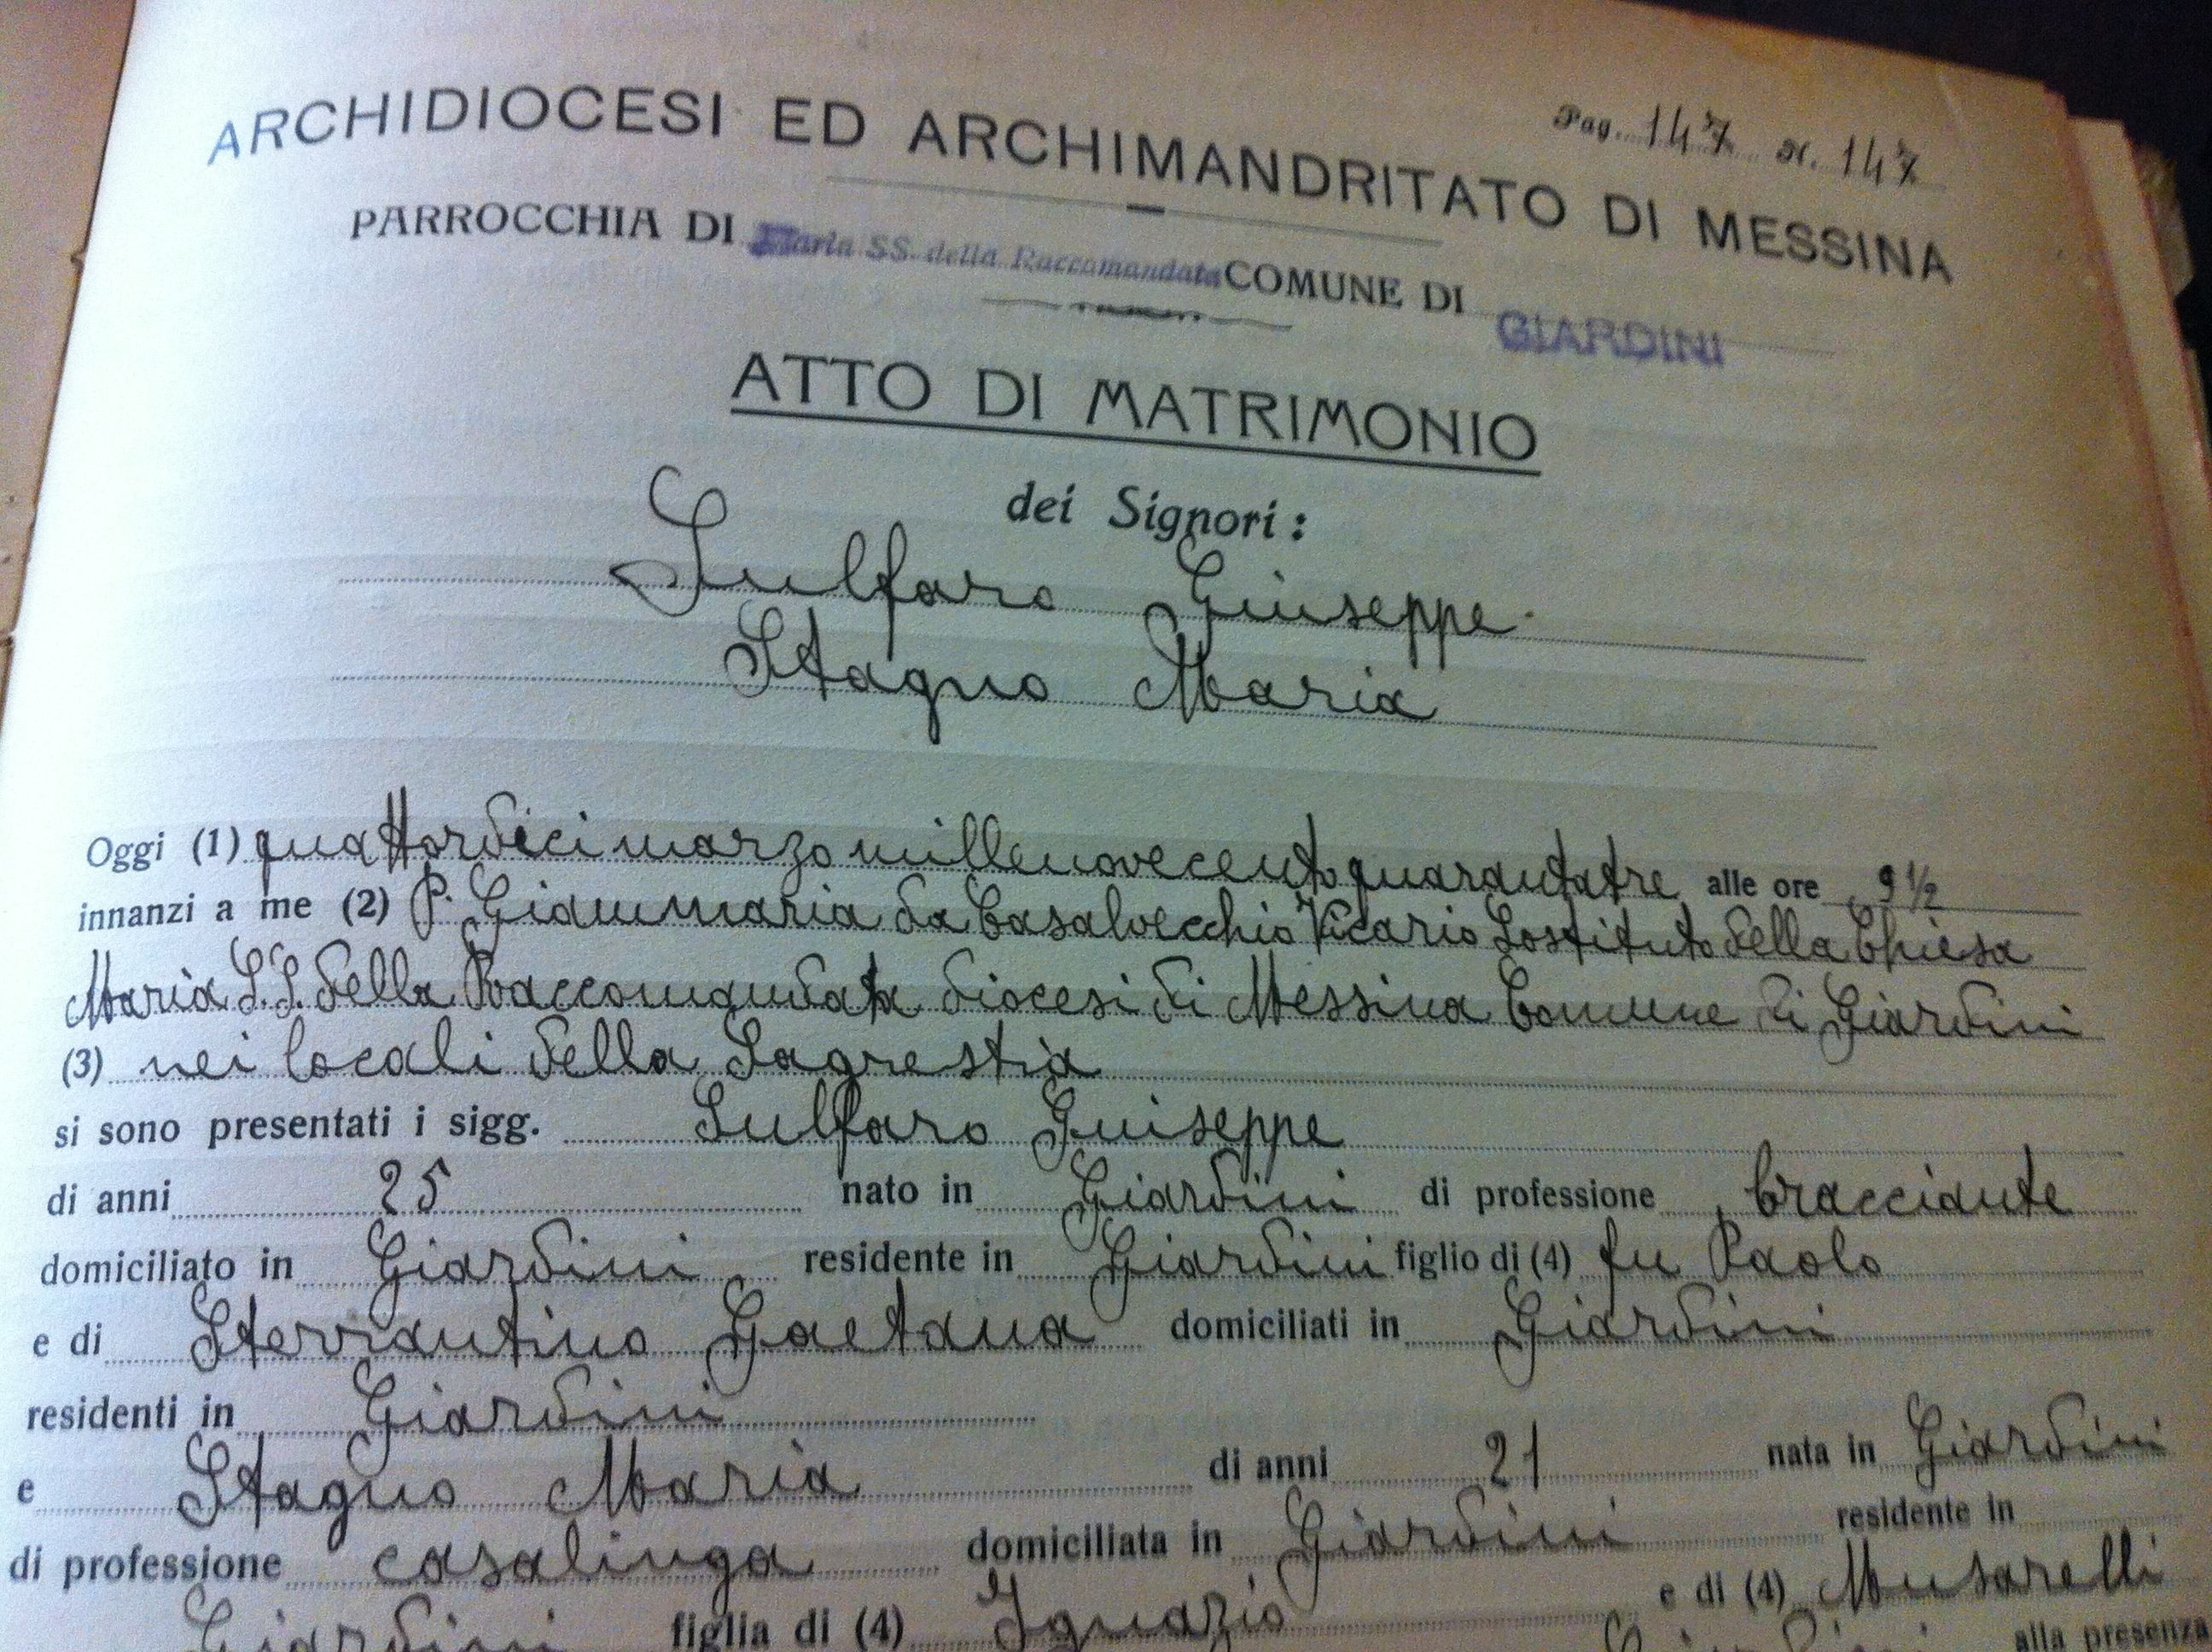 Pag. 147 N. 147
ARCHIDIOCESI ED ARCHIMANDRITATO DI MESSINA
PARROCCHIA DI Maria SS. della Raccomandata COMUNE DI GIARDINI
ATTO DI MATRIMONIO
dei Signori:
Sulfaro Giuseppe
Stagno Maria
Oggi (1) quattordici marzo millenovecentoquarantatre alle ore 9 1/2
innanzi a me (2) P. Gianmaria da Casalvecchio Vicario Sostituto della Chiesa
Maria S.S. della Raccomandata diocesi di Messina Comune di Giardini
(3) nei locali della Sagrestia
si sono presentati i sigg. Sulfaro Guiseppe
di anni 25 nato in Giardini di professione bracciante
domiciliato in Giardini residente in Giardini figlio di (4) fu Paolo
e di Sterrantino Gaetana domiciliati in Giardini
residenti in Giardini
e Stagno Maria di anni 21 nata in Giardini
di professione casalinga domiciliata in Giardini residente in
Giardini figlia di (4) Ignazio e di (4) Musarelli
alla presenza